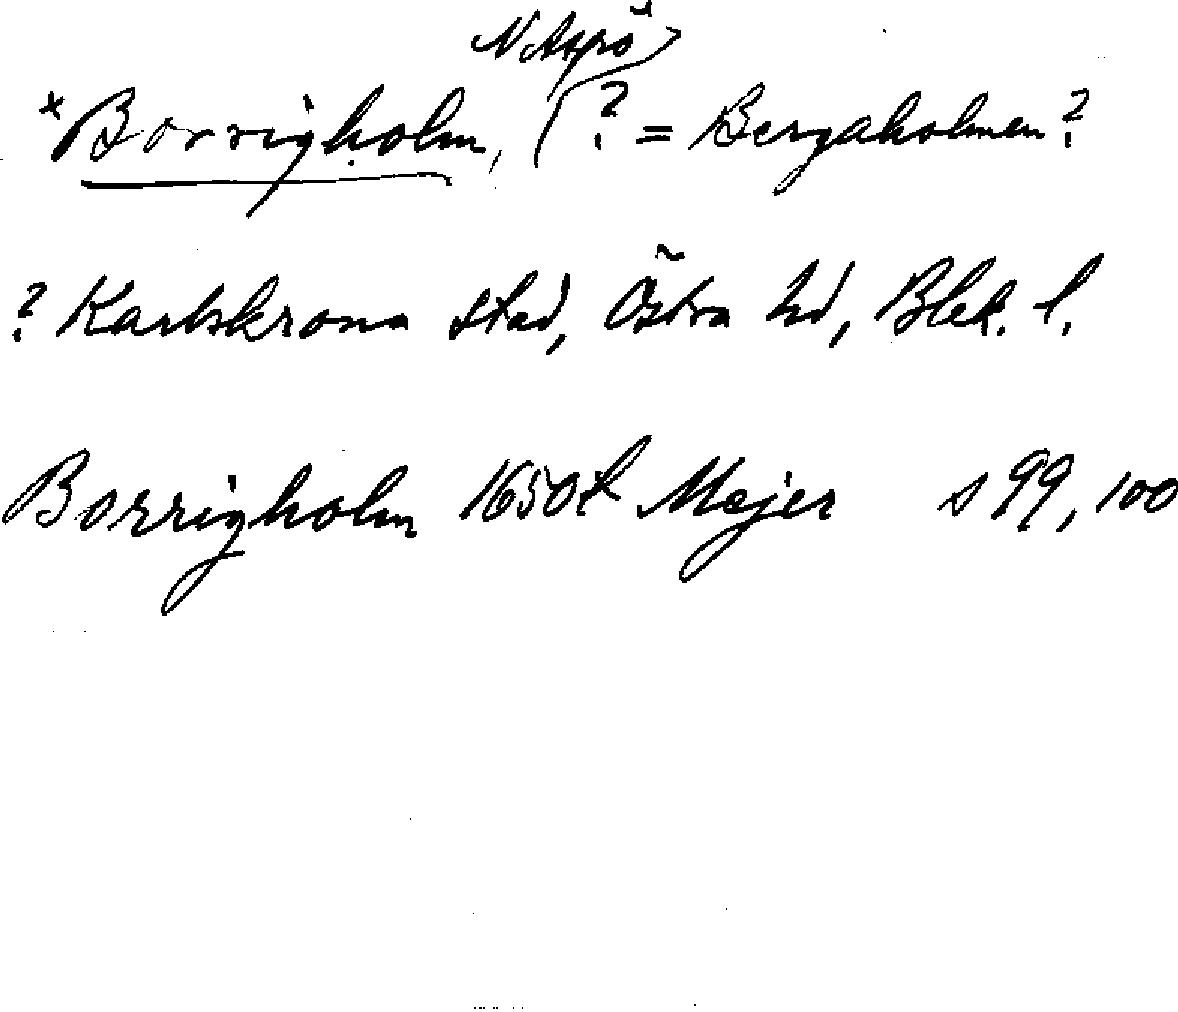 N Aspö
*Borrigholm, (? = Bergaholmen?
? Karlskrona stad, Östra hd, Blek. l.
Borrigholm 1650t Mejer s 99, 100